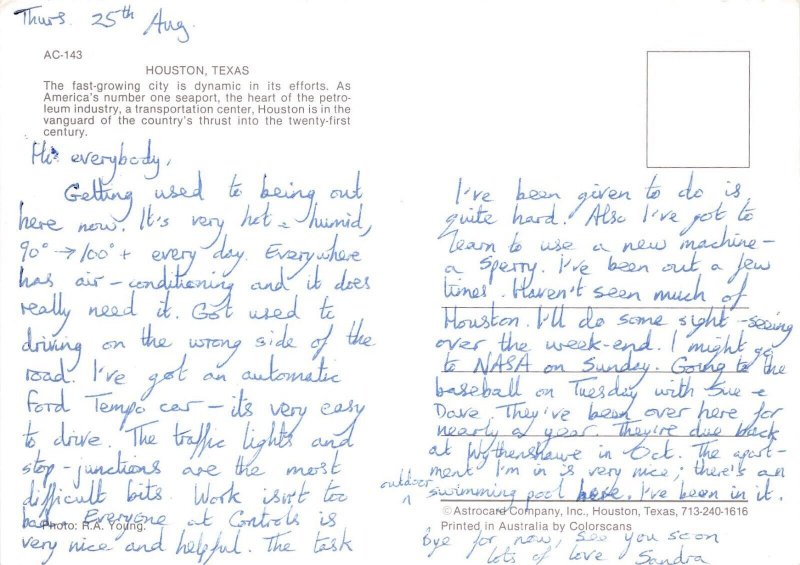 Thurs. 25th Aug.
AC-143
HOUSTON, TEXAS
The fast-growing city is dynamic in its efforts. As
America's number one seaport, the heart of the petro-
leum industry, a transportation center, Houston is in the
vanguard of the country's thrust into the twenty-first
century.
Hi everybody,
Getting used to being out
here now. It's very hot & humid,
90° → 100° + every day. Everywhere
has air-conditioning and it does
really need it. Got used to
driving on the wrong side of the
road. I've got an automatic
Ford Tempo car - its very easy
to drive. The traffic lights and
stop-junctions are the most
difficult bits. Work isn't too
bad. Everyone at Controls is
Photo: R.A. Young.
very nice and helpful. The task
I've been given to do is
quite hard. Also I've got to
learn to use a new machine -
a Sperry. I've been out a few
times. Haven't seen much of
Houston. I'll do some sight-seeing
over the week-end. I might go
to NASA on Sunday. Going to the
baseball on Tuesday with Sue &
Dave. They've been over here for
nearly a year. They're due back
at Wythenshawe in Oct. The apart-
ment I'm in is very nice; there's an
outdoor
swimming pool here. I've been in it.
© Astrocard Company, Inc., Houston, Texas, 713-240-1616
Printed in Australia by Colorscans
Bye for now, see you soon
lots of love Sandra